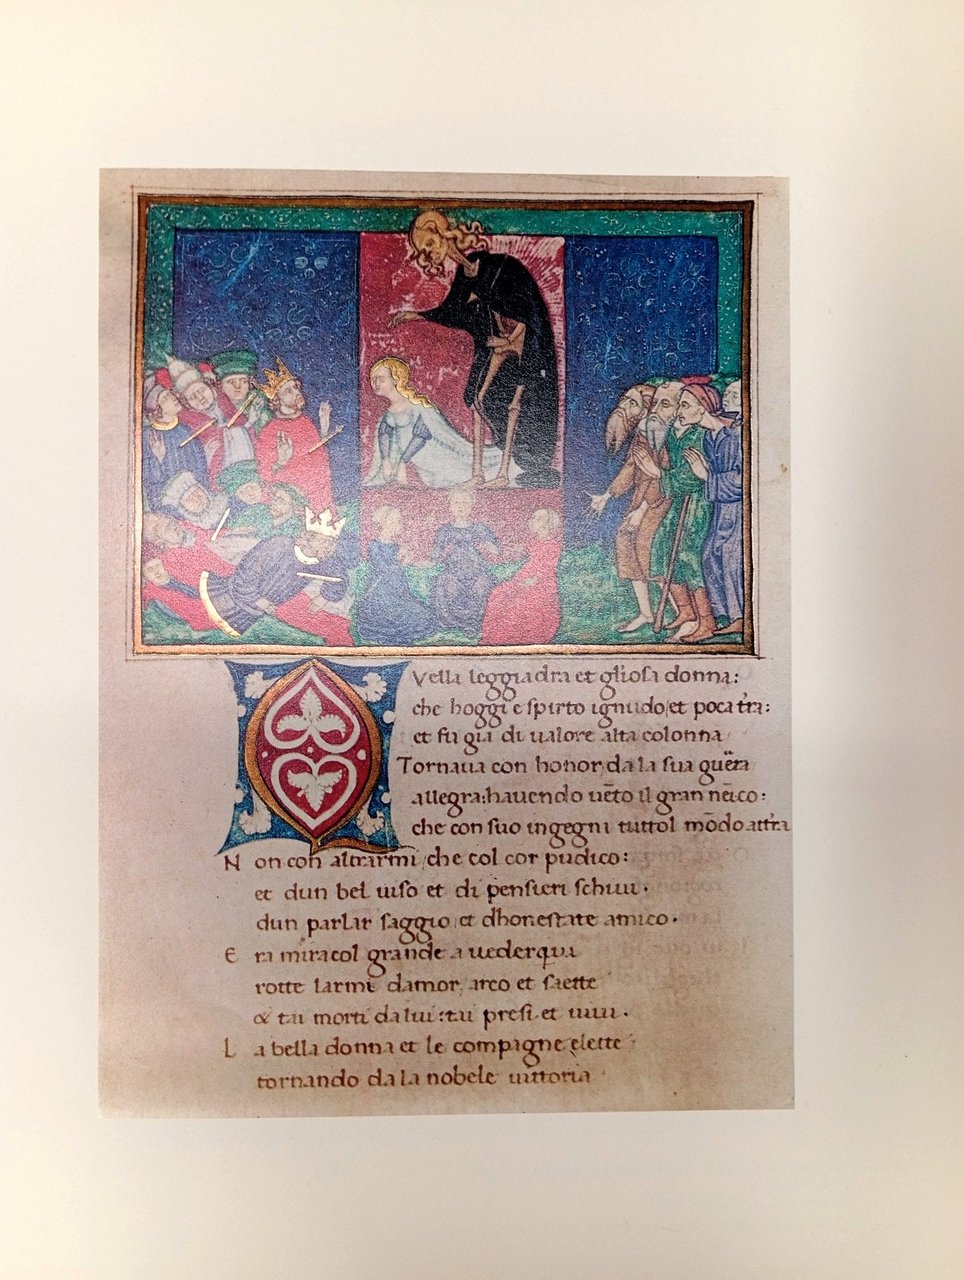 Quella leggiadra et gliosa donna:
che hoggi e spirto ignudo et poca tr̄a:
et fu gia di ualore alta colonna
Tornaua con honor da la sua guēra
allegra: hauendo uēto il gran neīco:
che con suo ingegni tuttol mōdo attr̄a
Non con altrarmi che col cor pudico:
et dun bel uiso et di pensieri schiui.
dun parlar saggio et dhonestate amico.
Era miracol grande a ueder qui
rotte larmi damor, arco et saette
& tai morti da lui: tai presi et uiui.
La bella donna et le compagne elette
tornando da la nobele uittoria